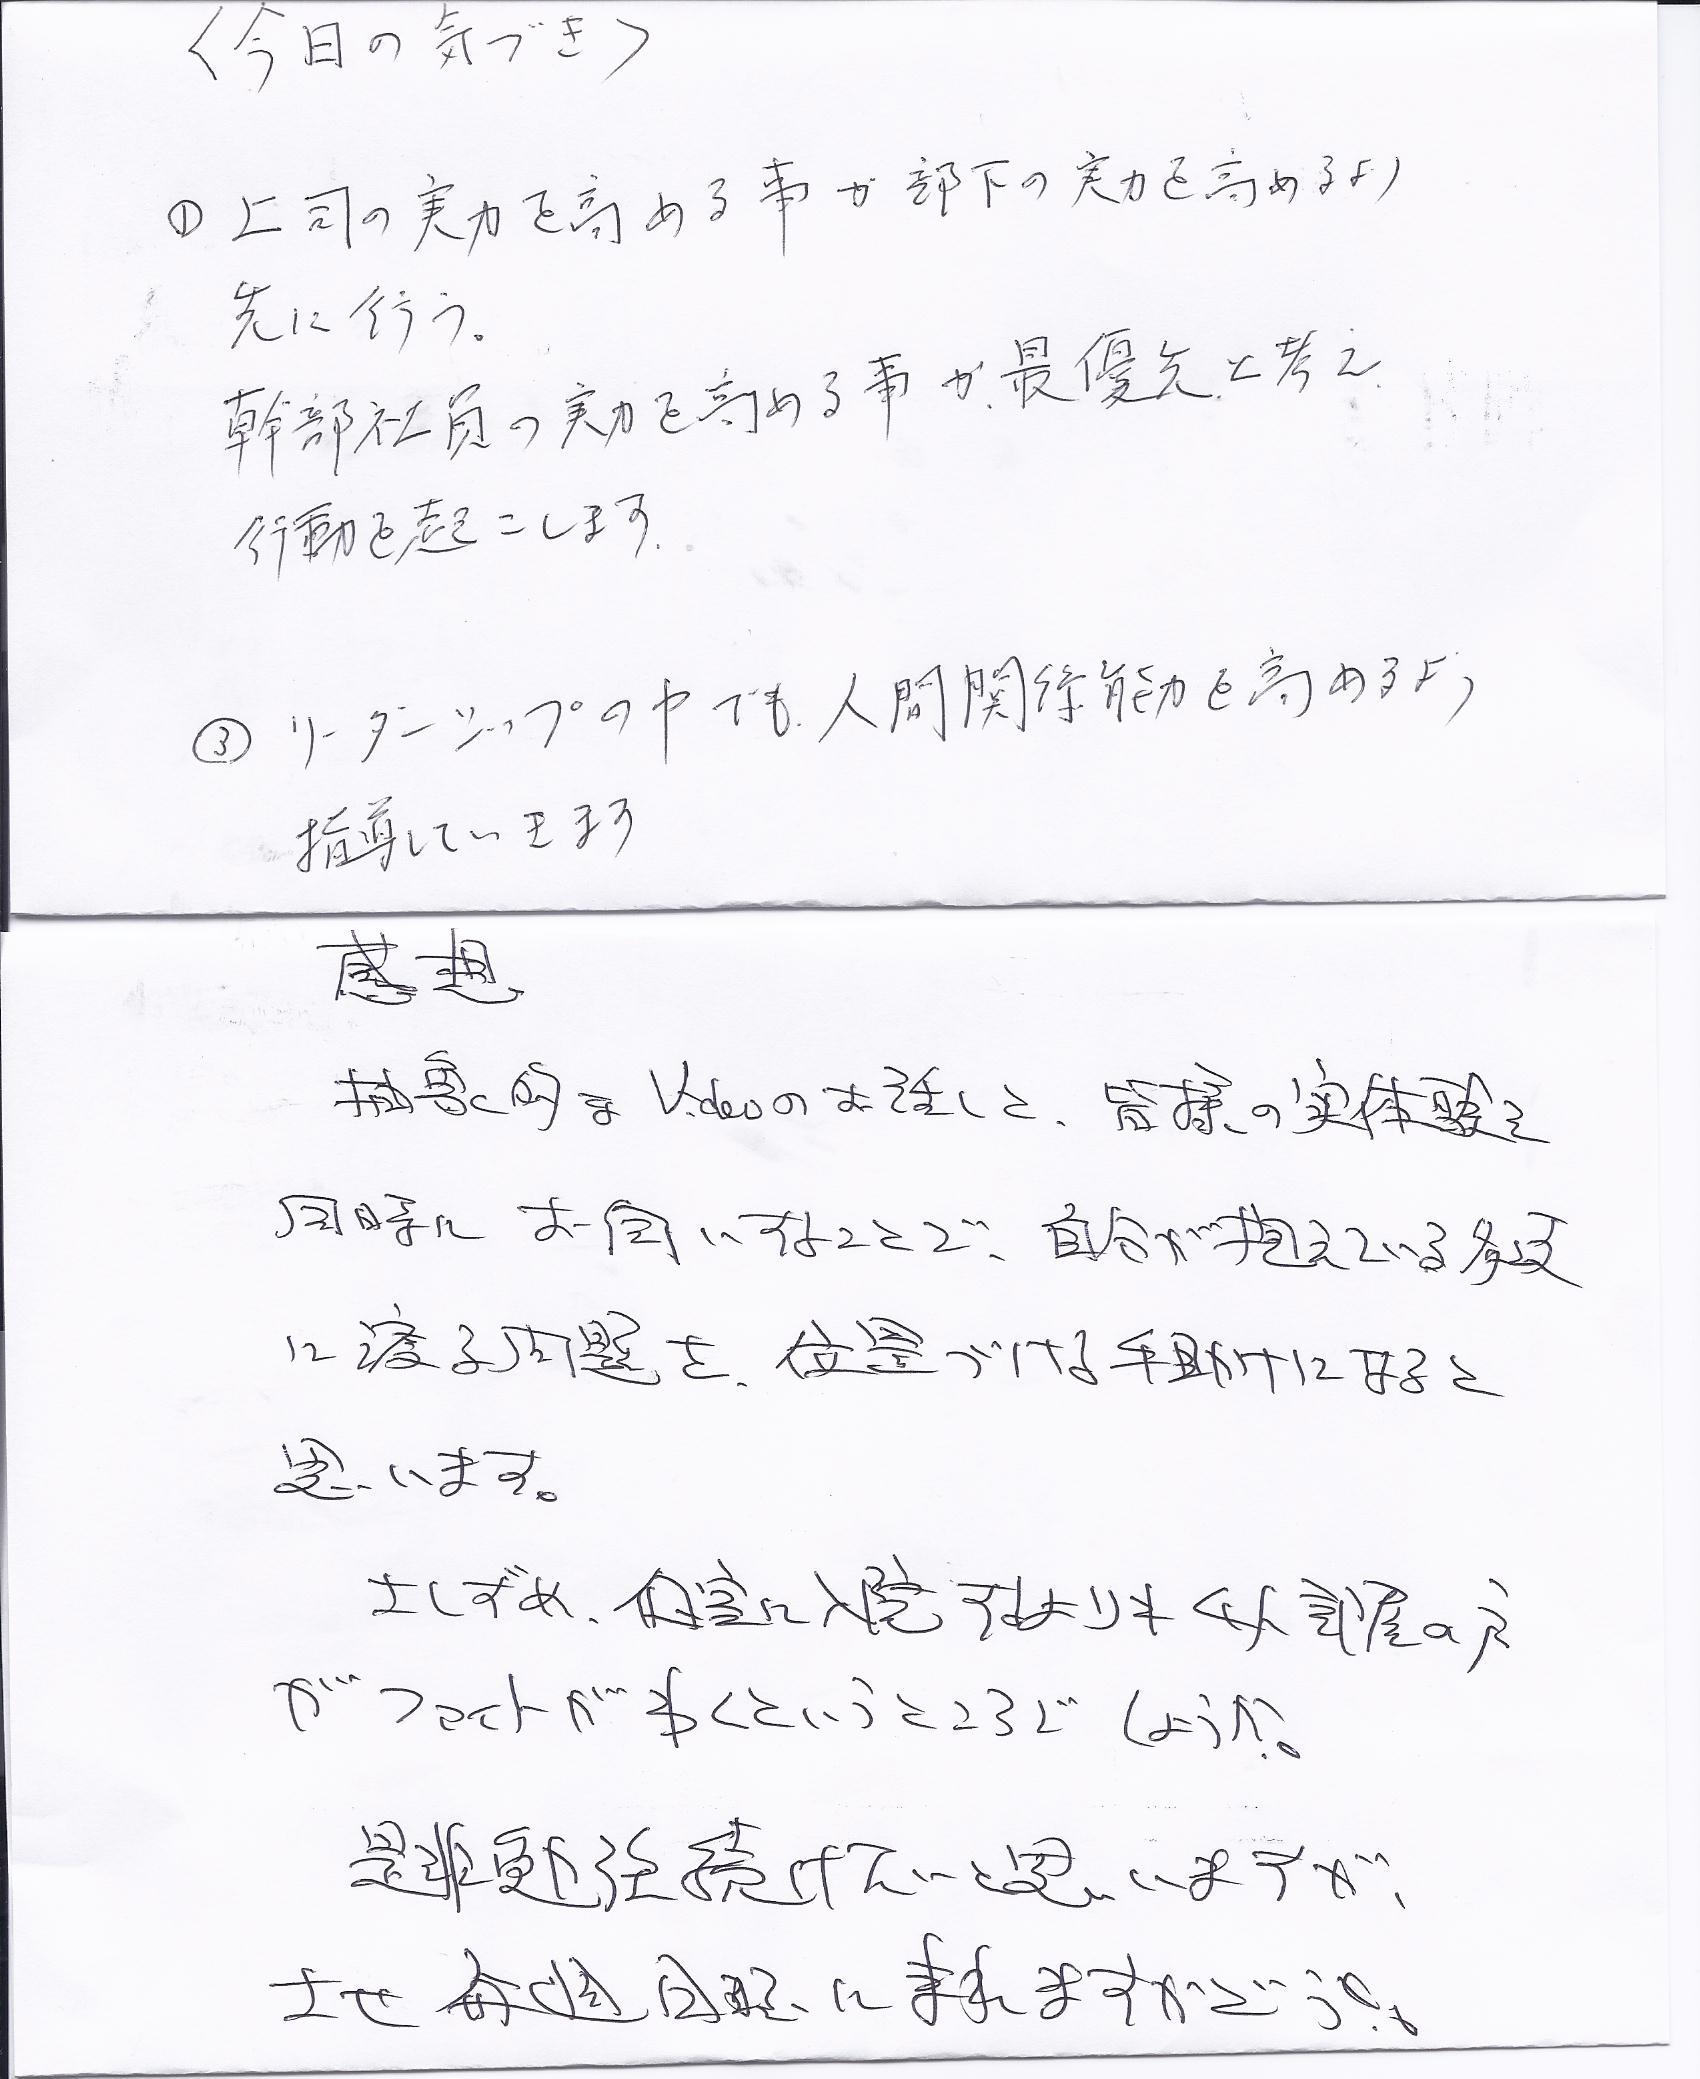 〈今日の気づき〉
① 上司の実力を高める事が部下の実力を高めるより
先に行う。
幹部社員の実力を高める事が、最優先と考え、
行動を起こします。
③ リーダーシップの中でも、人間関係能力を高めるよう
指導していきます
感想
抽象的なVideoのお話しと、皆様の実体験を
同時にお伺いすることで、自分が抱えている多岐
に渡る問題を、位置づける手助けになると
思います。
さしずめ、個室に入院するよりも大部屋の方
がファイトが湧くというところでしょうか。
是非勉強続けたいと思いますが、
さて毎週日曜に来れますかどうか。